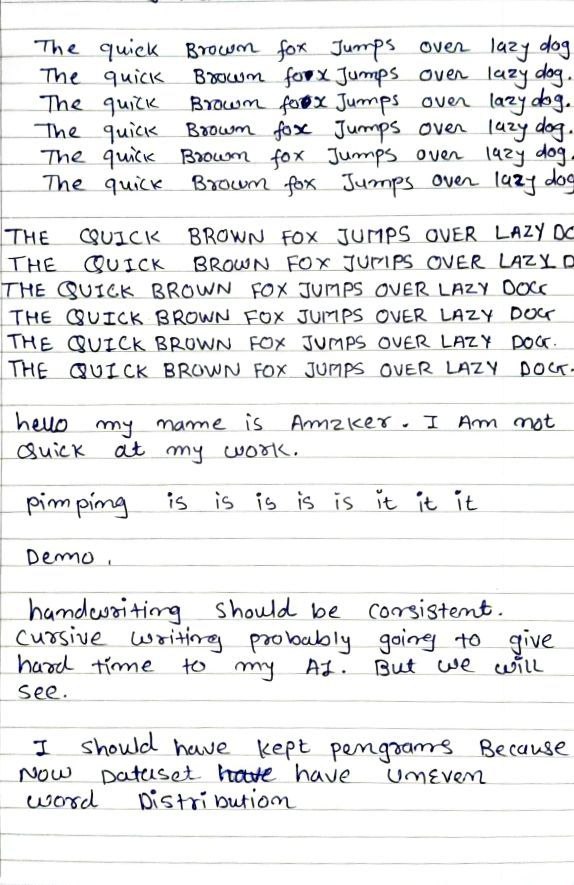 The quick Brown fox Jumps over lazy dog
The quick Brown fox Jumps over lazy dog.
The quick Brown fox Jumps over lazy dog.
The quick Brown fox Jumps over lazy dog.
The quick Brown fox Jumps over lazy dog.
The quick Brown fox Jumps over lazy dog
THE QUICK BROWN FOX JUMPS OVER LAZY DO
THE QUICK BROWN FOX JUMPS OVER LAZY D
THE QUICK BROWN FOX JUMPS OVER LAZY DOG
THE QUICK BROWN FOX JUMPS OVER LAZY DOG
THE QUICK BROWN FOX JUMPS OVER LAZY DOG.
THE QUICK BROWN FOX JUMPS OVER LAZY DOG.
hello my name is Amzker. I Am not
Quick at my work.
pimping is is is is is it it it
Demo.
handwriting should be consistent.
Cursive writing probably going to give
hard time to my AI. But we will
see.
I should have kept pengrams Because
Now Dataset have have uneven
word Distribution